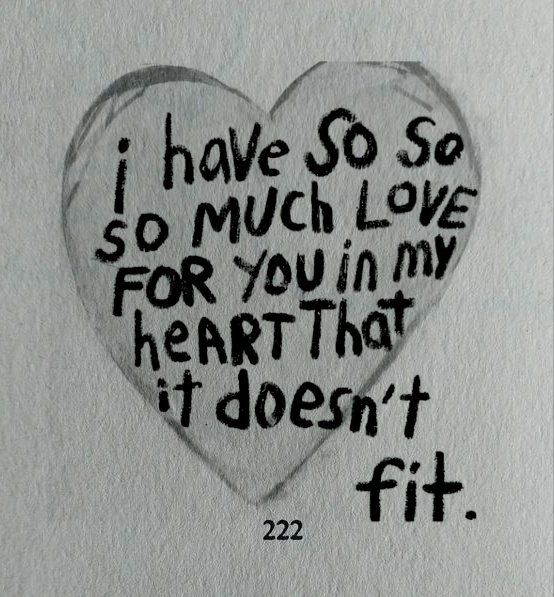 i have So So
so MUCh LOVE
FOR YOU in my
heART That
it doesn't
fit.
222